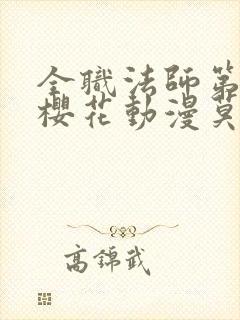 全職法師第
櫻花動漫莫
高錦武